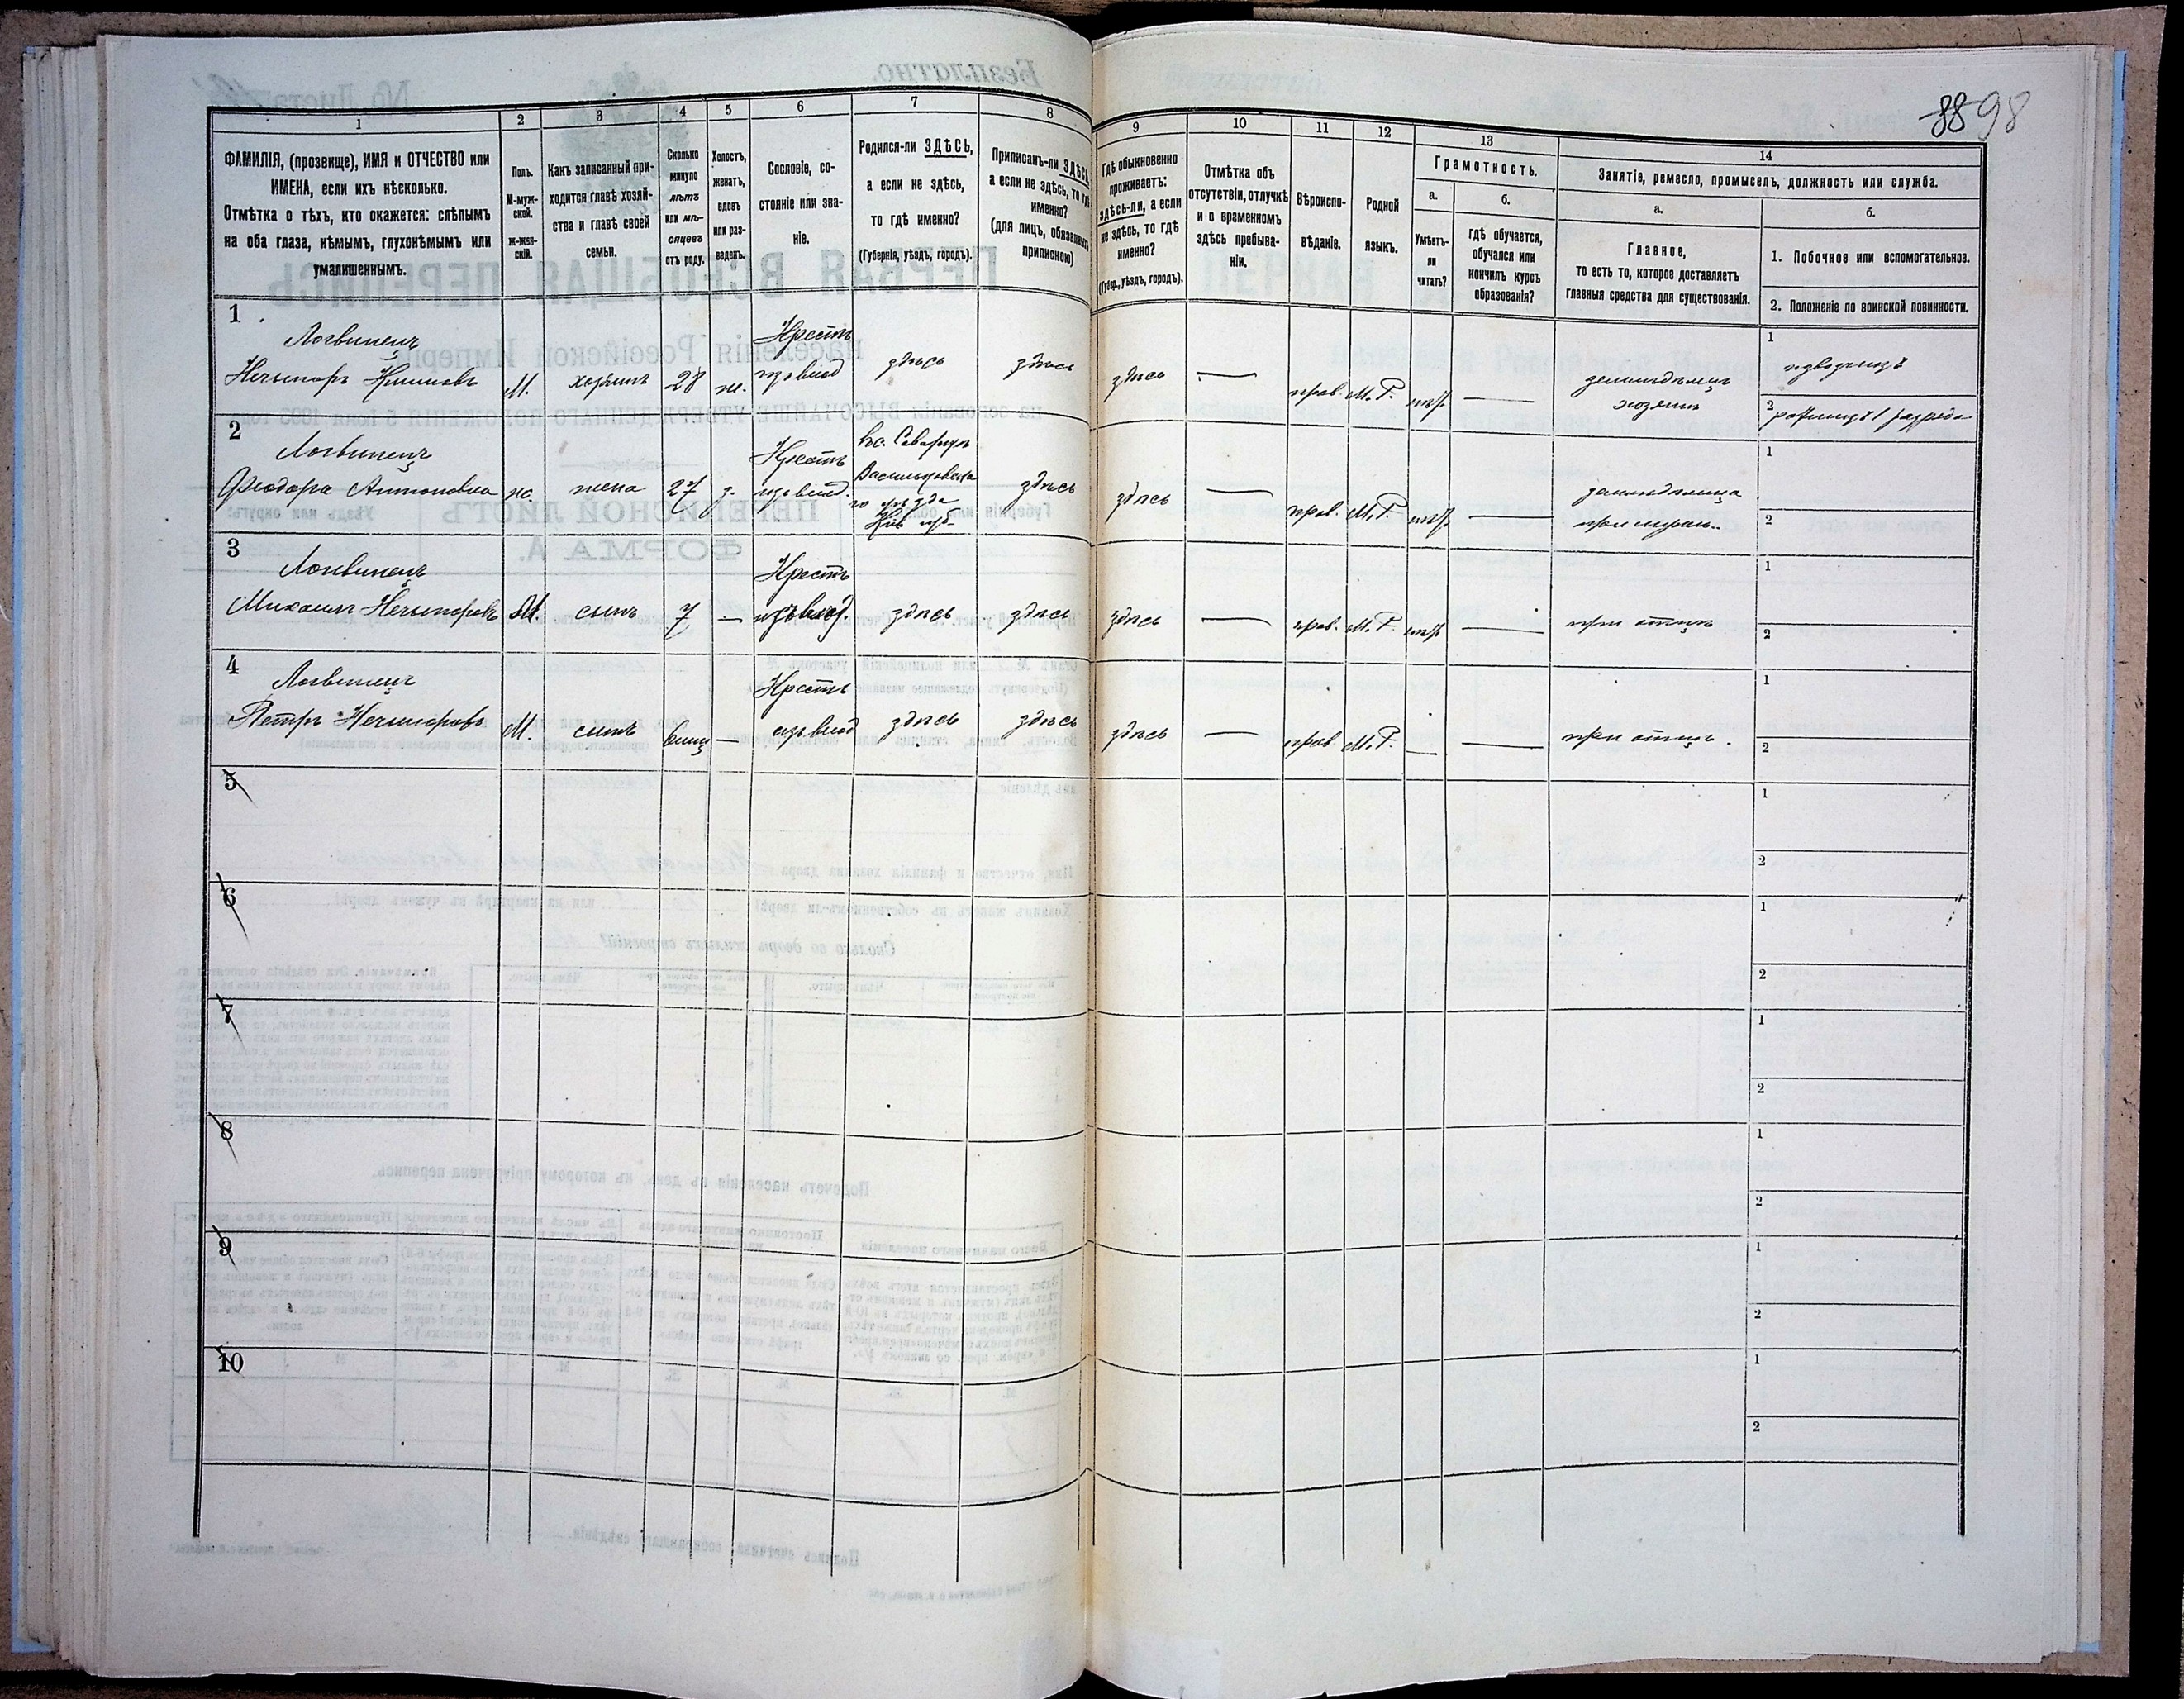 88 98
1
2
3
4
5
6
7
8
9
10
11
12
13
14
ФАМИЛІЯ, (прозвище), ИМЯ и ОТЧЕСТВО или
ИМЕНА, если ихъ нѣсколько.
Отмѣтка о тѣхъ, кто окажется: слѣпымъ
на оба глаза, нѣмымъ, глухонѣмымъ или
умалишеннымъ.
Полъ.
М-муж-
ской.
Ж-жен-
скій.
Какъ записанный при-
ходится главѣ хозяй-
ства и главѣ своей
семьи.
Сколько
минуло
лѣтъ
или мѣ-
сяцевъ
отъ роду.
Холостъ,
женатъ,
вдовъ
или раз-
веденъ.
Сословіе, со-
стояніе или зва-
ніе.
Родился-ли ЗДѢСЬ,
а если не здѣсь,
то гдѣ именно?
(Губернія, уѣздъ, городъ).
Приписанъ-ли ЗДѢСЬ,
а если не здѣсь, то гдѣ
именно?
(для лицъ, обязанныхъ
припискою)
Гдѣ обыкновенно
проживаетъ:
здѣсь-ли, а если
не здѣсь, то гдѣ
именно?
(Губер., уѣздъ, городъ).
Отмѣтка объ
отсутствіи, отлучкѣ
и о временномъ
здѣсь пребыва-
ніи.
Вѣроиспо-
вѣданіе.
Родной
языкъ.
Грамотность.
а.
Умѣетъ-
ли
читать?
б.
гдѣ обучается,
обучался или
кончилъ курсъ
образованія?
Занятіе, ремесло, промыселъ, должность или служба.
а.
Главное,
то есть то, которое доставляетъ
главныя средства для существованія.
б.
1. Побочное или вспомогательное.
2. Положеніе по воинской повинности.
1
Логвинецъ
Нечыпоръ Климовъ
М.
хозяинъ
28
ж.
Крестъ
изъ влад
здѣсь
здѣсь
здѣсь
—
прав.
М.Р.
—
земледѣлецъ
хозяинъ
1
2
2
Логвинецъ
Феодора Антоновна
ж.
жена
27
з.
Крестъ
изъ влад.
Васильковска
го уѣзда
Кіев губ
здѣсь
здѣсь
—
прав.
М.Р.
—
1
2
3
Логвинецъ
Михаилъ Нечыпоровъ
М.
сынъ
7
—
Крестъ
изъ влад.
здѣсь
здѣсь
здѣсь
—
прав.
М.Р.
—
при отцѣ
1
2
4
Логвинецъ
Петръ Нечыпоровъ
М.
сынъ
—
Крестъ
изъ влад
здѣсь
здѣсь
здѣсь
—
прав
М.Р.
—
—
при отцѣ.
1
2
5
1
2
6
1
2
7
1
2
8
1
2
9
1
2
10
1
2